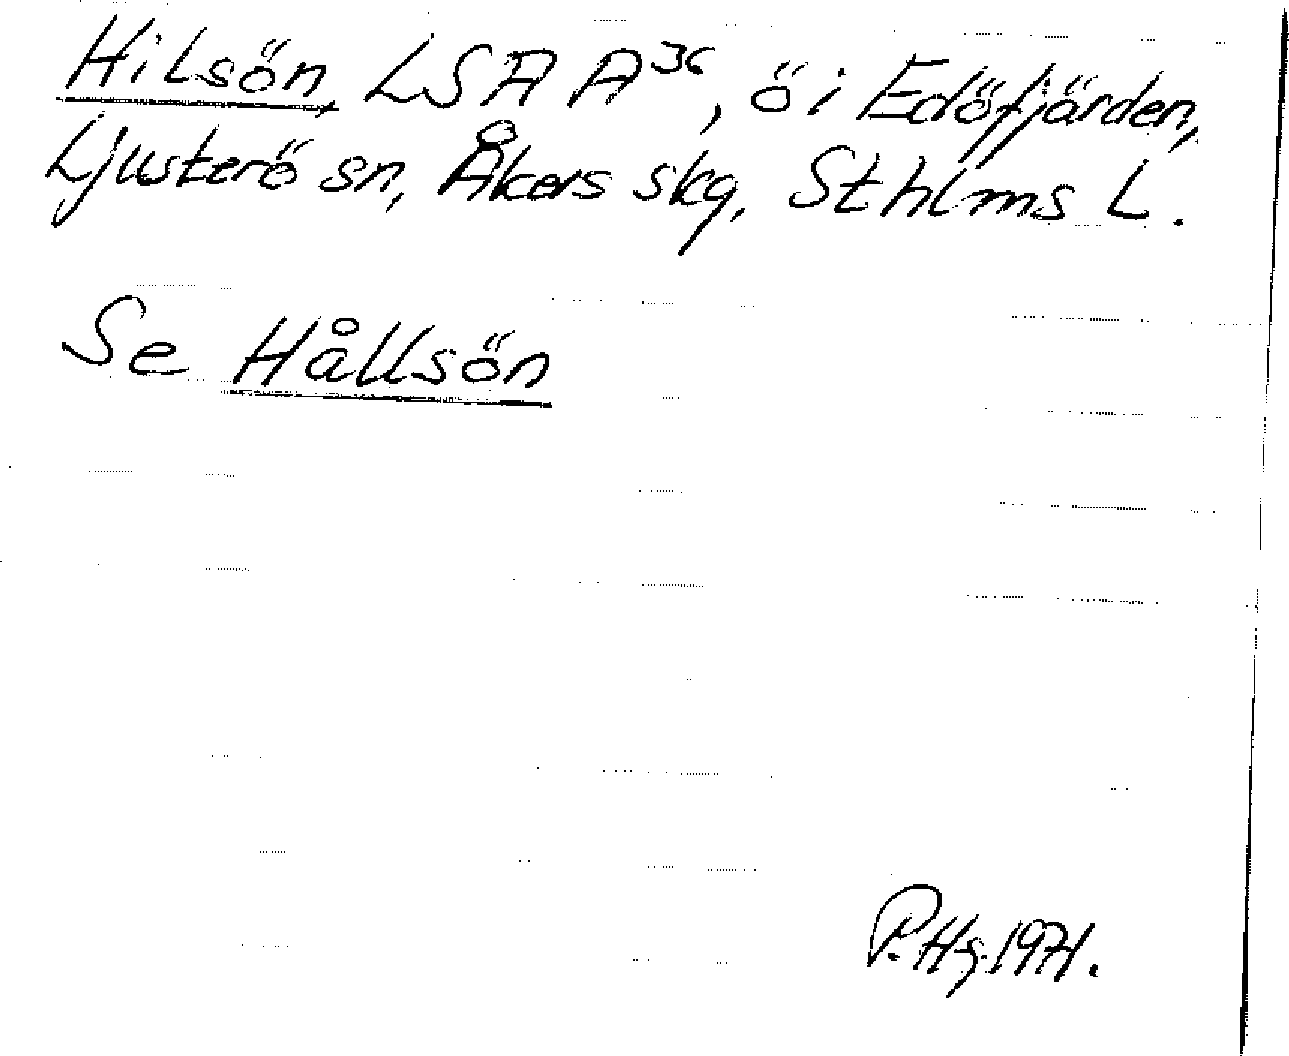 Hilsön, LSA A³⁶, ö i Edöfjärden,
Ljusterö sn, Åkers skg, Sthlms L.
Se Hållsön
P. Hg. 1971.